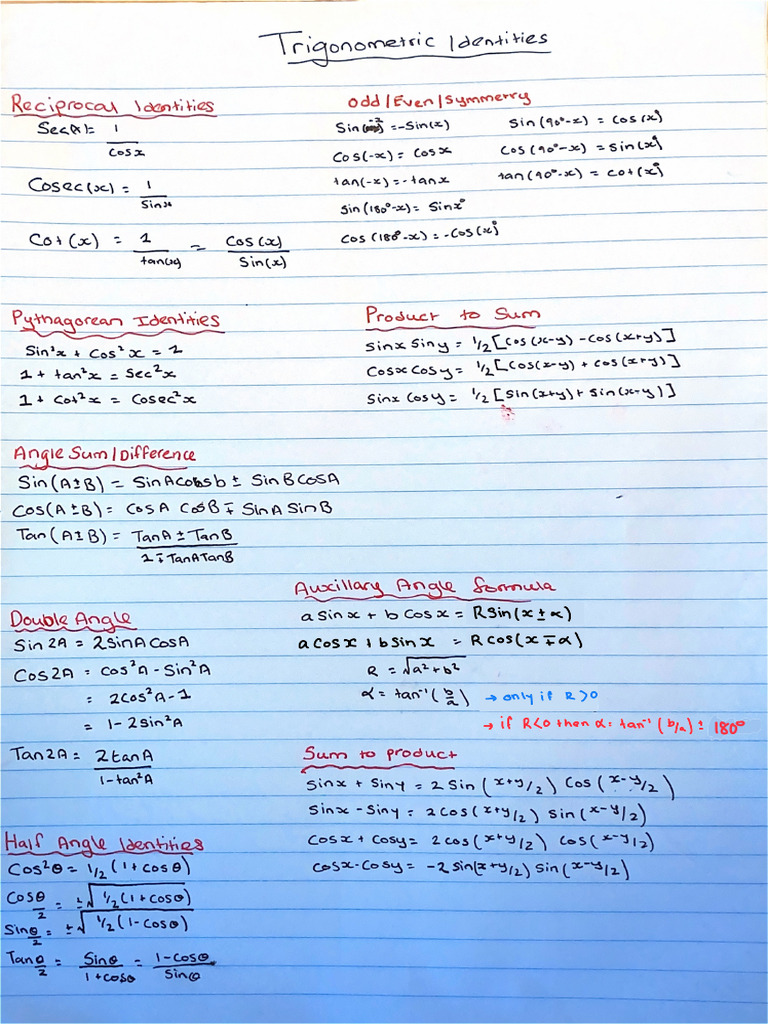 Trigonometric Identities
Reciprocal Identities
Sec(x) = 1/cosx
Cosec(x) = 1/sinx
Cot(x) = 1/tan(x) = Cos(x)/Sin(x)
Odd/Even/Symmetry
Sin(-x) = -Sin(x)
Cos(-x) = Cosx
tan(-x) = -tanx
Sin(180°-x) = Sinx°
Cos(180°-x) = -Cos(x)°
Sin(90°-x) = Cos(x)°
Cos(90°-x) = Sin(x)°
tan(90°-x) = Cot(x)°
Pythagorean Identities
Sin²x + Cos²x = 1
1 + tan²x = Sec²x
1 + Cot²x = Cosec²x
Product to Sum
Sinx Siny = 1/2[Cos(x-y) - Cos(x+y)]
Cosx Cosy = 1/2[Cos(x-y) + Cos(x+y)]
Sinx Cosy = 1/2[Sin(x+y) + Sin(x-y)]
Angle Sum/Difference
Sin(A±B) = SinACosb ± SinBCosA
Cos(A±B) = CosA CosB ∓ SinA SinB
Tan(A±B) = TanA ± TanB/1∓TanATanB
Auxillary Angle formula
a Sinx + b Cosx = RSin(x±α)
a Cosx + b Sinx = RCos(x∓α)
R = √a²+b²
α = tan⁻¹(b/a) → only if R>0
→ if R<0 then α = tan⁻¹(b/a) ± 180°
Double Angle
Sin2A = 2SinACosA
Cos2A = Cos²A - Sin²A
= 2Cos²A-1
= 1-2Sin²A
Tan2A = 2tanA/1-tan²A
Sum to product
Sinx + Siny = 2Sin(x+y/2) Cos(x-y/2)
Sinx - Siny = 2Cos(x+y/2) Sin(x-y/2)
Cosx + Cosy = 2Cos(x+y/2) Cos(x-y/2)
Cosx - Cosy = -2Sin(x+y/2) Sin(x-y/2)
Half Angle Identities
Cos²θ = 1/2(1+Cosθ)
Cosθ/2 = ±√1/2(1+Cosθ)
Sinθ/2 = ±√1/2(1-Cosθ)
Tanθ/2 = Sinθ/1+Cosθ = 1-Cosθ/Sinθ